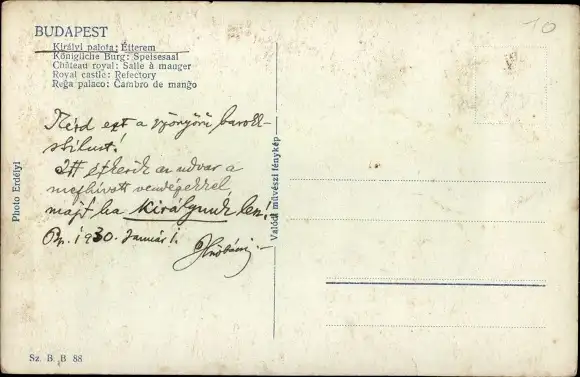 BUDAPEST
Királyi palota: Étterem
Königliche Burg: Speisesaal
Château royal: Salle à manger
Royal castle: Refectory
Reĝa palaco: Ĉambro de manĝo
10
Nézd ezt a gyönyörű barokk-
stílust!
Itt étkezik az udvar a
meghívott vendégekkel
majd ha királyunk lesz!
Bp. 1930. Január 1.
Photo Erdélyi
Valódi művészi fénykép
Sz. B. B 88